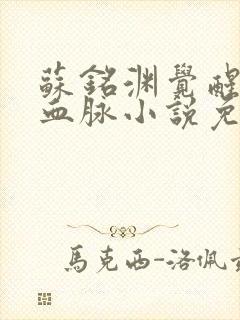 蘇銘渊覺醒
血脉小説免
馬克西-洛佩兹